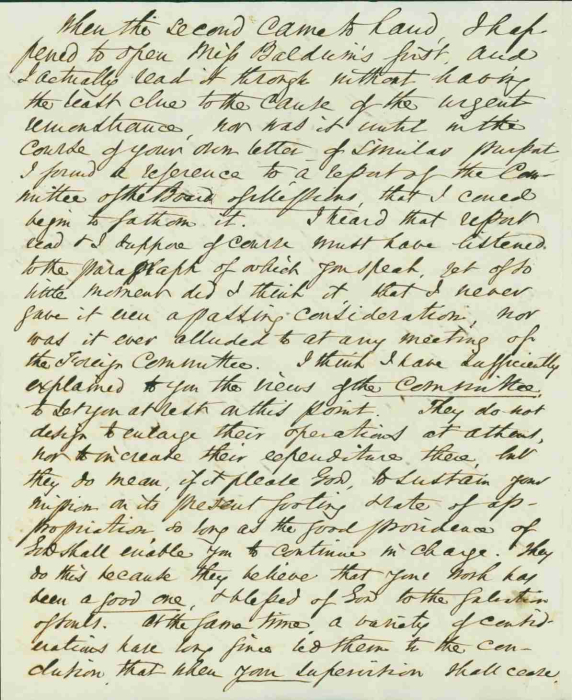 When the second came to hand I hap-
pened to open Miss Baldwin's first, and
I actually read it through without having
the least clue to the cause of the urgent
remonstrance, nor was it until in the
course of your own letter of similar purport
I found a reference to a report of the Com-
mittee of the Board of Missions, that I could
begin to fathom it. I heard that report
read & I suppose of course must have listened
to the paragraph of which you speak, yet of so
little moment did I think it, that I never
gave it even a passing consideration, nor
was it ever alluded to at any meeting of
the Foreign Committee. I think I have sufficiently
explained to you the views of the Committee,
to set you at rest on this point. They do not
design to enlarge their operations at Athens,
nor to increase their expenditure there, but
they do mean, if it please God, to sustain your
mission on its present footing & rate of ap-
propriation, so long as the good providence of
God shall enable you to continue in charge. They
do this because they believe that your work has
been a good one, & blessed of God to the salvation
of souls. At the same time, a variety of consid-
erations have long since led them to the con-
clusion, that when your supervision shall cease